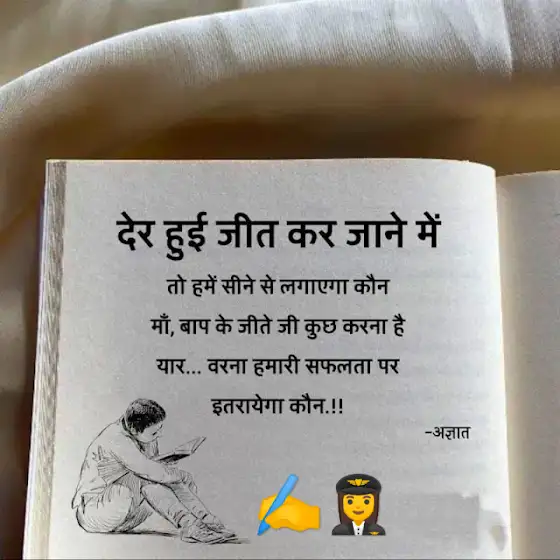 देर हुई जीत कर जाने में
तो हमें सीने से लगाएगा कौन
माँ, बाप के जीते जी कुछ करना है
यार... वरना हमारी सफलता पर
इतरायेगा कौन.!!
-अज्ञात